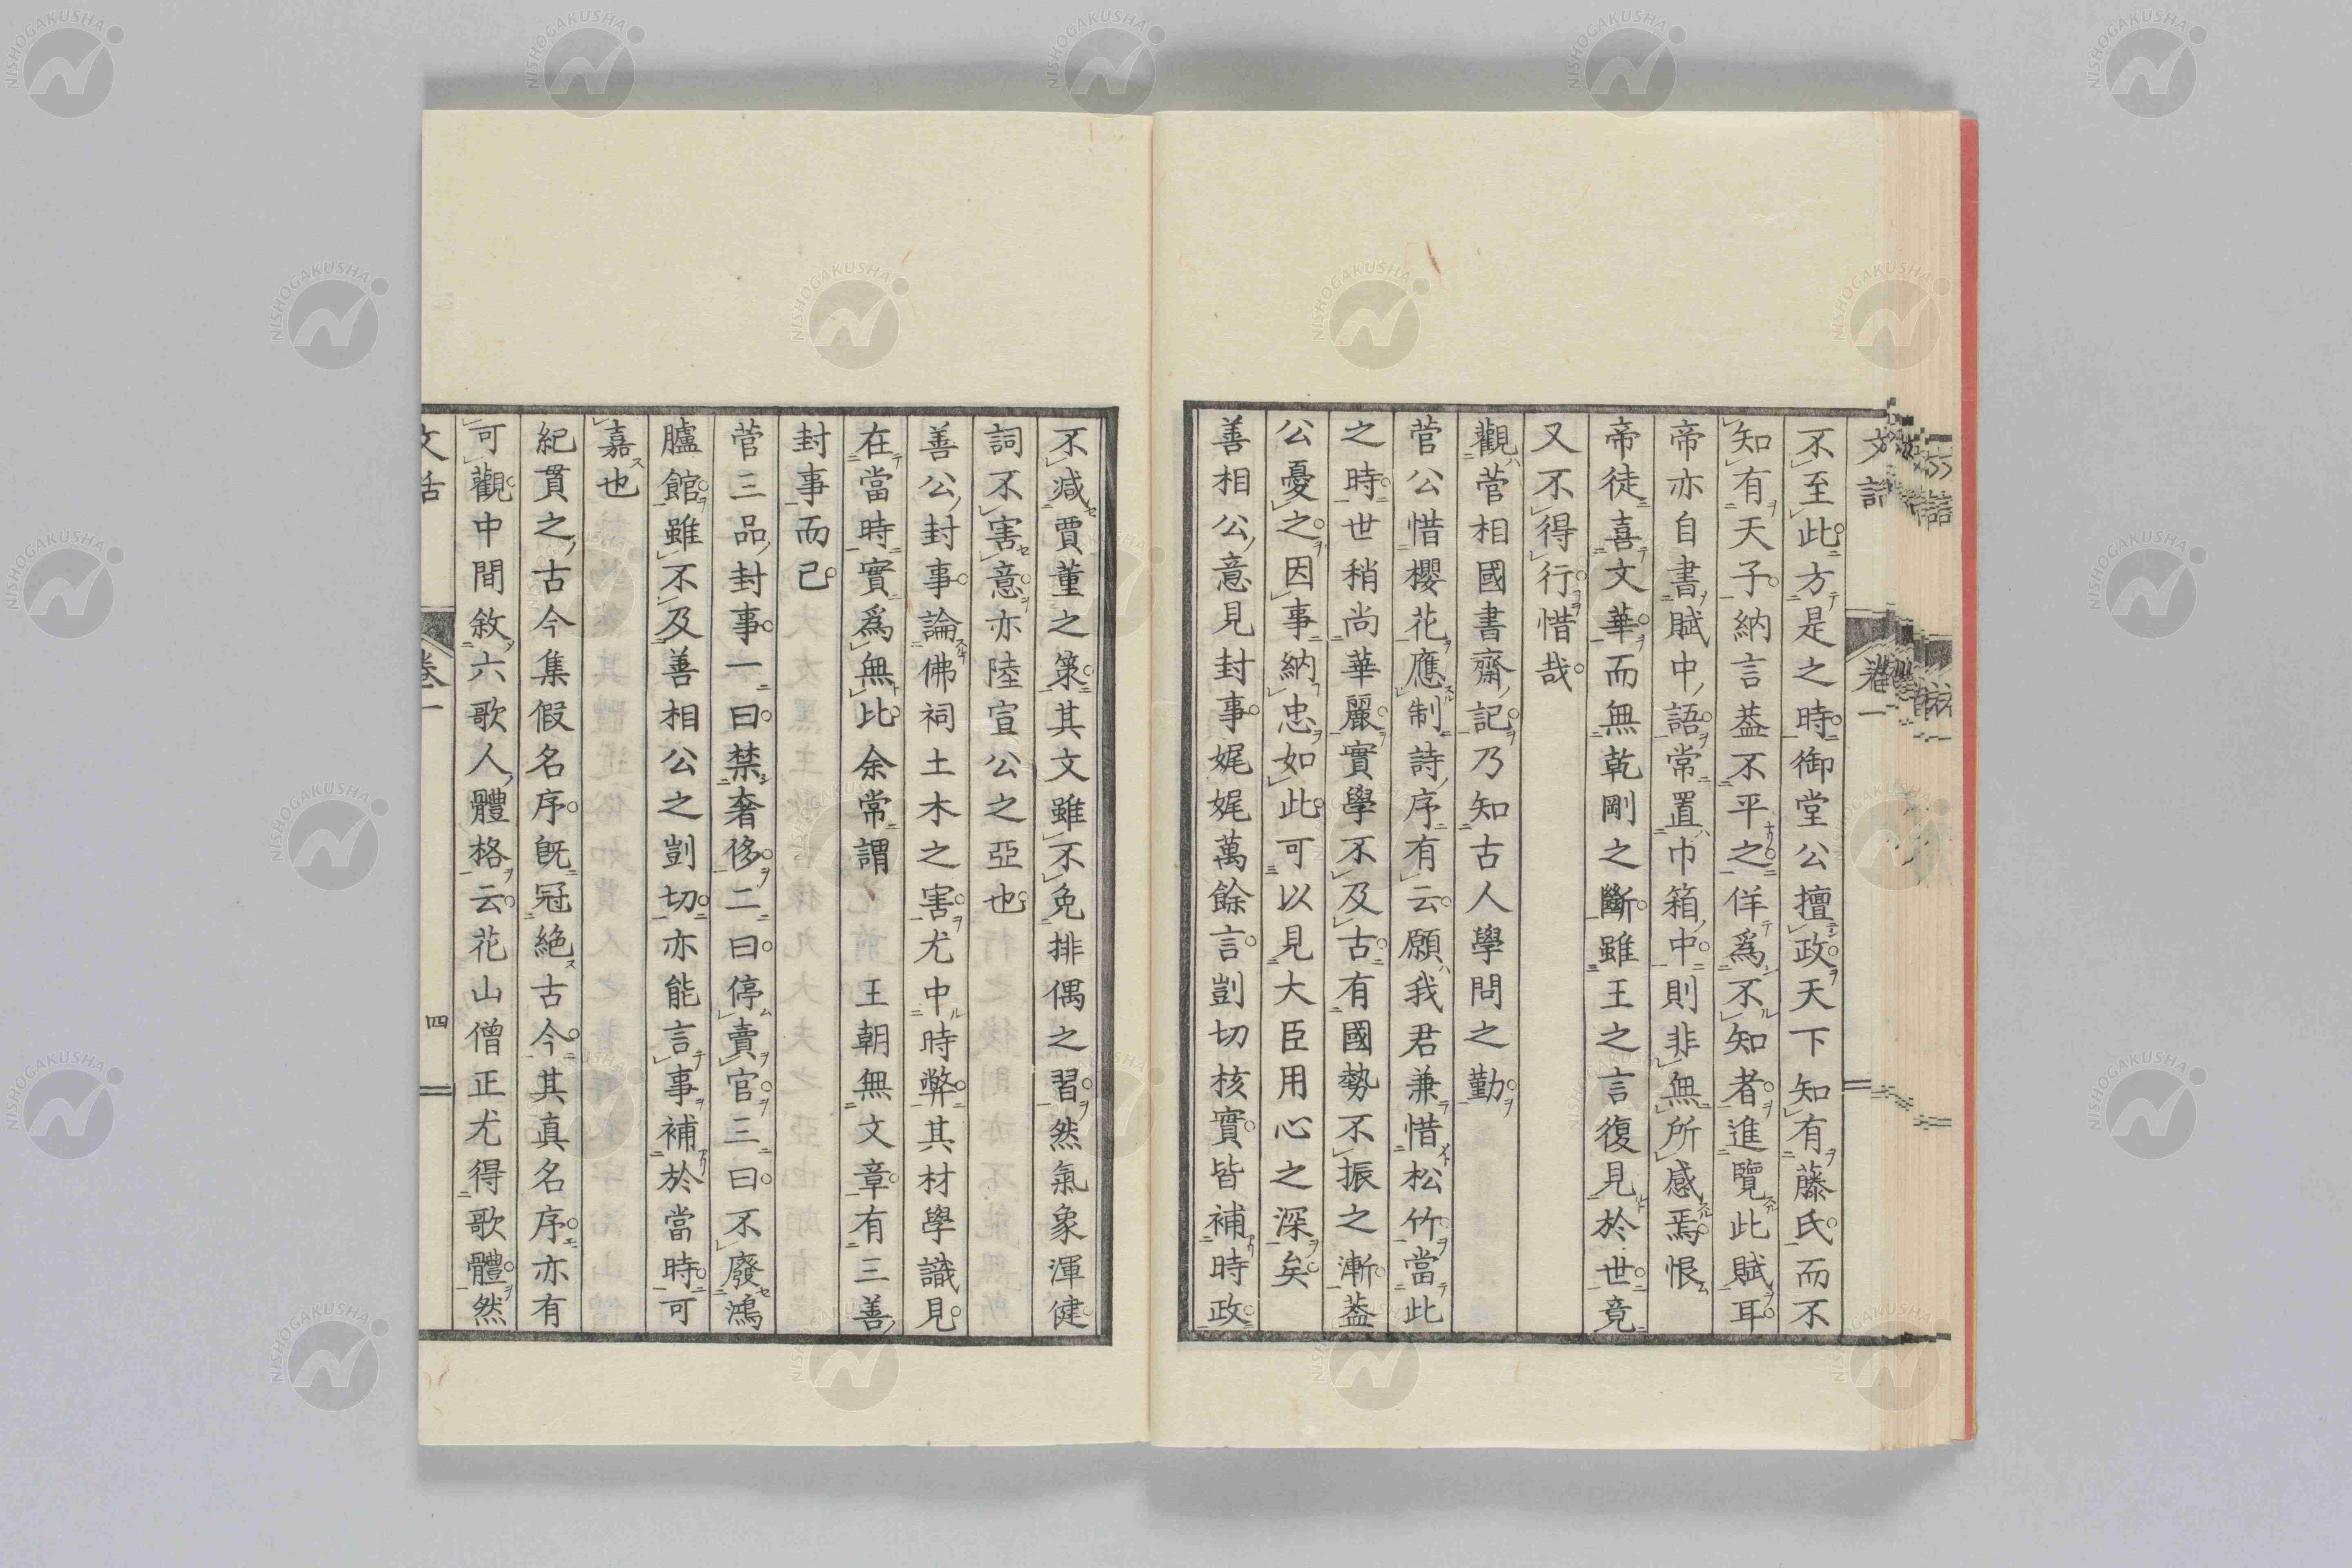 不至此方是之時御堂公擅政天下知有藤氏而不
知有天子納言葢不平之佯爲不知者進覽此賦耳
帝亦自書賦中語常置巾箱中則非無所感焉恨
帝徒喜文華而無乾剛之斷雖王之言復見於世竟
又不得行惜哉
觀菅相國書齋記乃知古人學問之勤
菅公惜櫻花應制詩序有云願我君兼惜松竹當此
之時世稍尚華麗實學不及古有國勢不振之漸葢
公憂之因事納忠如此可以見大臣用心之深矣
善相公意見封事娓娓萬餘言剴切核實皆補時政
不減賈董之策其文雖不免排偶之習然氣象渾健
詞不害意亦陸宣公之亞也
善公封事論佛祠土木之害尤中時弊其材學識見
在當時實爲無比余常謂 王朝無文章有三善
封事而已
菅三品封事一曰禁奢侈二曰停賣官三曰不廢鴻
臚館雖不及善相公之剴切亦能言事補於當時可
嘉也
紀貫之古今集假名序旣冠絶古今其真名序亦有
可觀中間敘六歌人體格云花山僧正尤得歌體然
文話 卷一 四
NISHOGAKUSHA